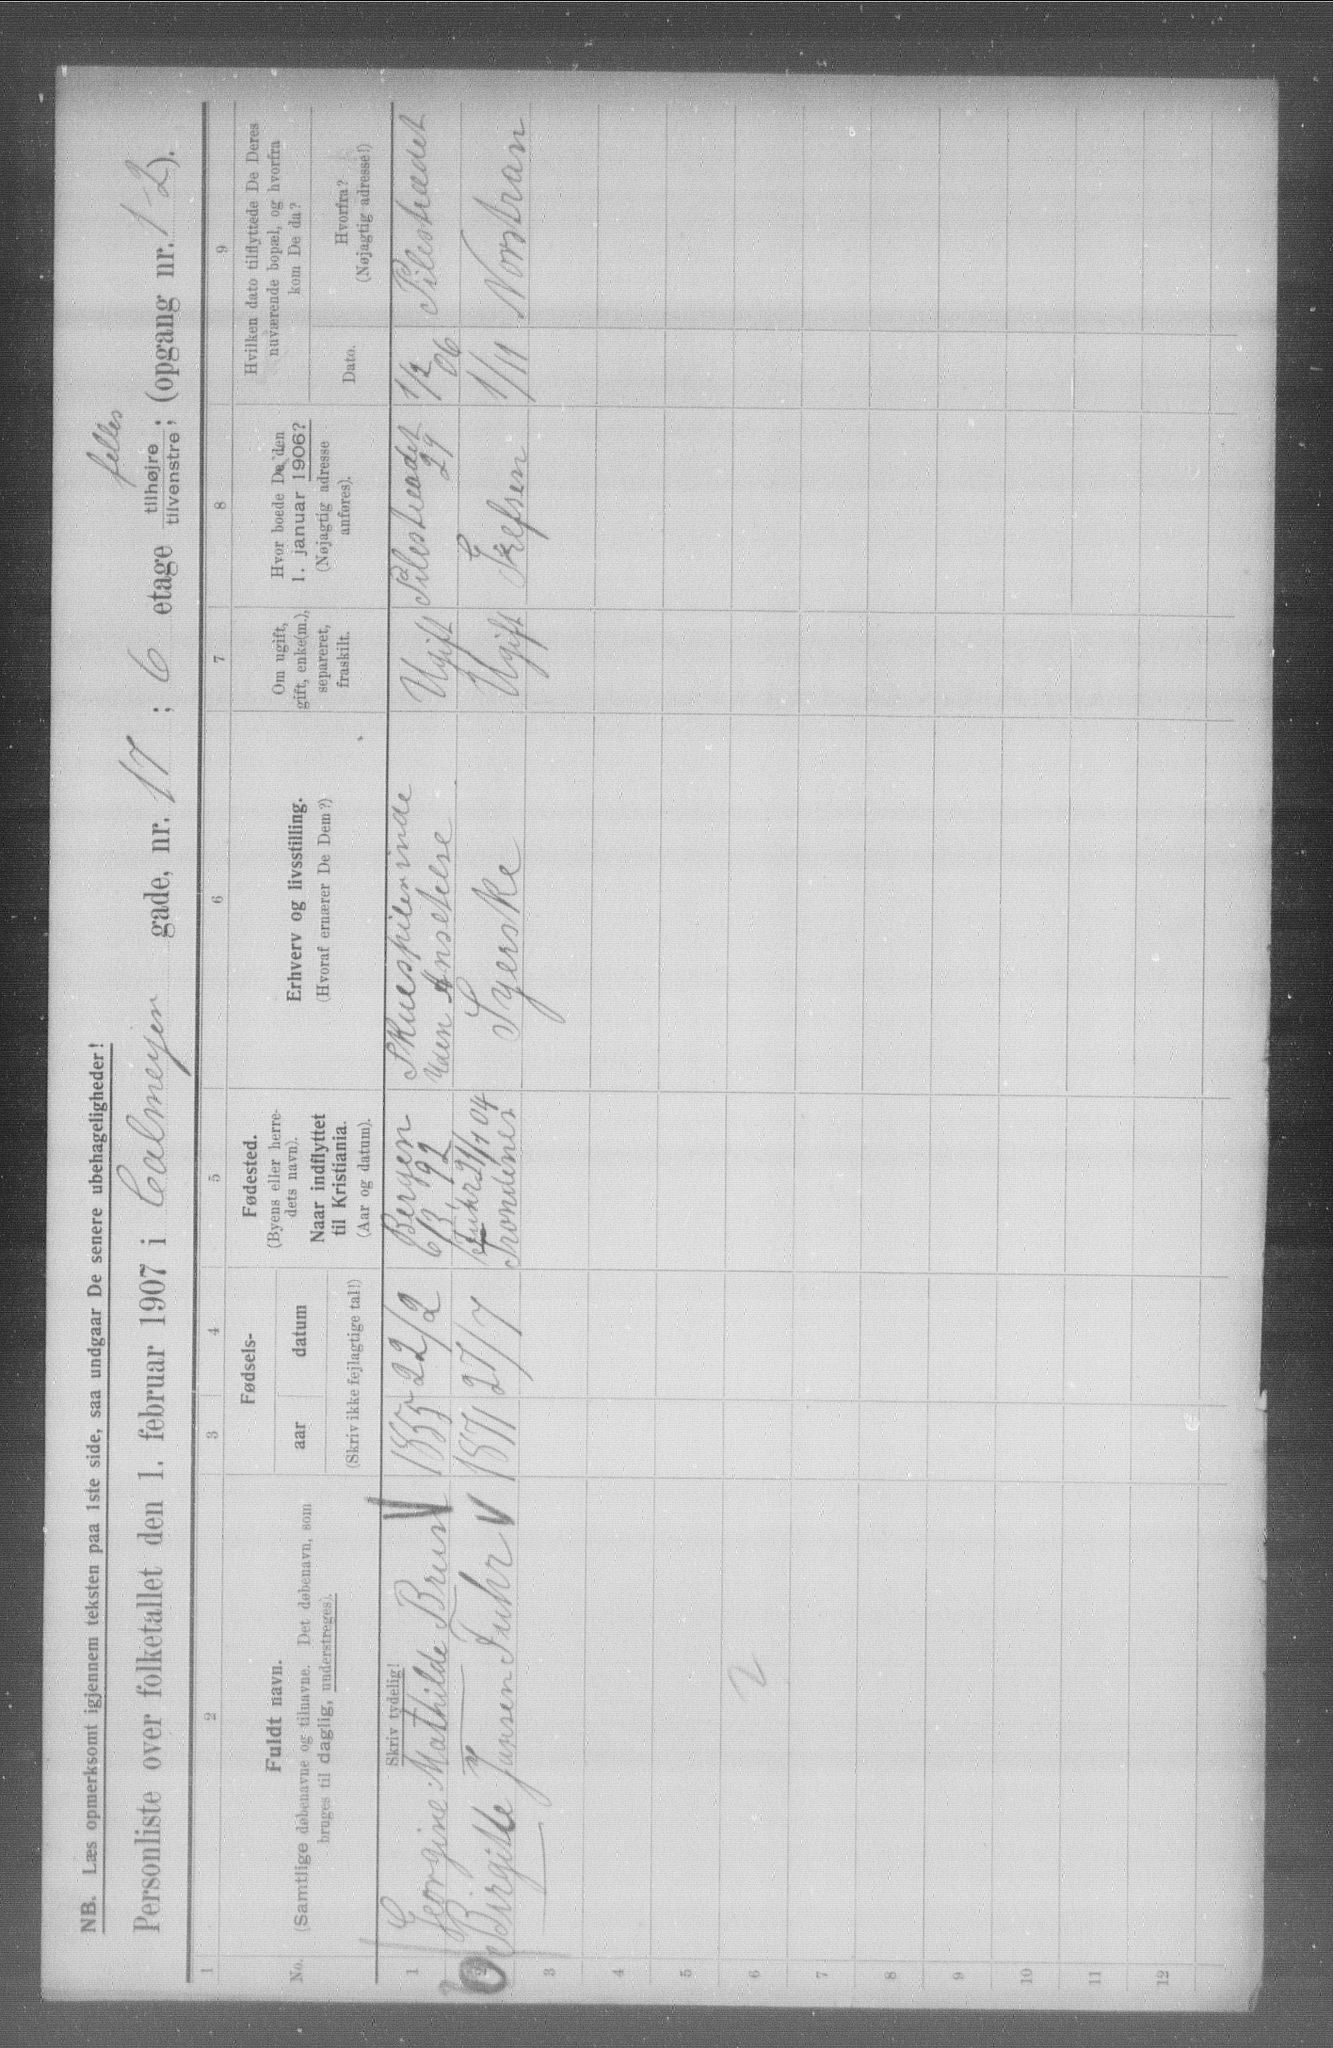 NB. Læs opmerksomt igjennem teksten paa 1ste side, saa undgaar De senere ubehageligheder!
Personliste over folketallet den 1. februar 1907 i Calmeyer gade, nr. 17 ; 6 etage tilhøjre / tilvenstre felles ; (opgang nr. 1-2).
1 2 3 4 5 6 7 8 9
No.
Fuldt navn.
(Samtlige døbenavne og tilnavne. Det døbenavn, som
bruges til daglig, understreges).
Skriv tydelig!
Fødsels-
aar datum
(Skriv ikke fejlagtige tal!)
Fødested.
(Byens eller herre-
dets navn).
Naar indflyttet
til Kristiania.
(Aar og datum).
Erhverv og livsstilling.
(Hvoraf ernærer De Dem?)
Om ugift,
gift, enke(m.),
separeret,
fraskilt.
Hvor boede De den
1. januar 1906?
(Nøjagtig adresse
anføres).
Hvilken dato tilflyttede De Deres
nuværende bopæl, og hvorfra
kom De da?
Dato.
Hvorfra?
(Nøjagtig adresse!)
1 Georgine Mathilde Brun 1855 22/2 Bergen 6/3 92 Skuespilerinde Uden Ansetelse Ugift Pilestrædet 29 1/2 06 Pilestrædet
2 Birgitte Jansen Fuhr 1871 27/7 Trondenes Syerske Ugift Grefsen 1/11 Norstran
3
4
5
6
7
8
9
10
11
12
2